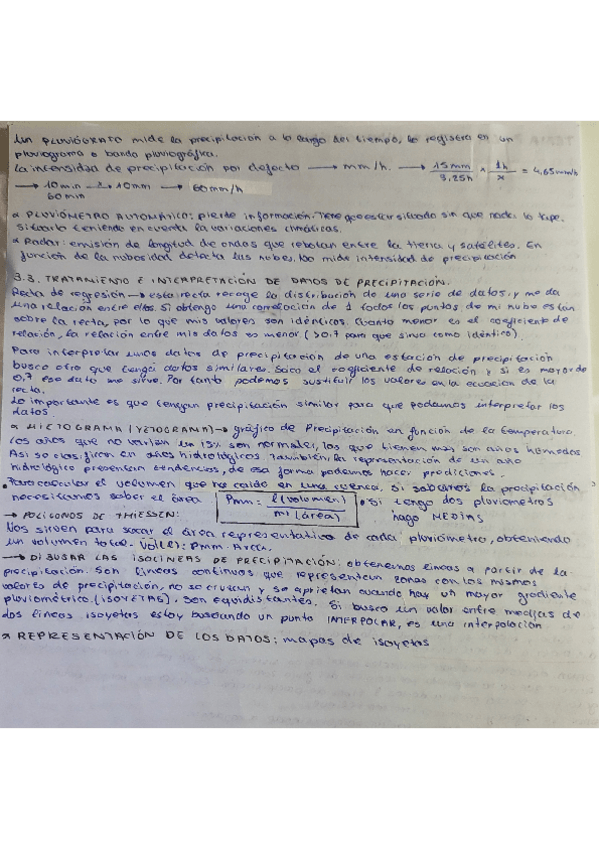 Un PLUVIÓGRAFO mide la precipitación a lo largo del tiempo, lo registra en un
pluviograma o banda pluviográfica.
La intensidad de precipitación por defecto → mm/h. → 15mm / 3,25h · 1h / x = 4,65mm/h
→ 10min → 10mm → 60mm/h
60min
PLUVIÓMETRO AUTOMÁTICO: pierde información. Tiene que estar situado sin que nada lo tape.
Situarlo teniendo en cuenta la variaciones climáticas.
Radar: emisión de longitud de ondas que rebotan entre la tierra y satélites. En
función de la nubosidad detecta las nubes. No mide intensidad de precipitación
3.3. TRATAMIENTO E INTERPRETACIÓN DE DATOS DE PRECIPITACIÓN.
Recta de regresión → esta recta recoge la distribución de una serie de datos, y me da
una relación entre ellos. Si obtengo una correlación de 1 todos los puntos de mi nube están
sobre la recta, por lo que mis valores son idénticos. Cuanto menor es el coeficiente de
relación, la relación entre mis datos es menor (>0,7 para que sirva como idéntico).
Para interpretar unos datos de precipitación de una estación de precipitación
busco otro que tenga datos similares. Saco el coeficiente de relación y si es mayor de
0,7 ese dato me sirve. Por tanto podemos sustituir los valores en la ecuación de la
recta.
Lo importante es que tengan precipitación similar para que podamos interpretar los
datos.
HIETOGRAMA (YETOGRAMA) → gráfico de Precipitación en función de la temperatura
Los años que no varían un 15% son normales, los que tienen más son años húmedos
Así se clasifican en años hidrológicos. También, la representación de un año
hidrológico presentan tendencias, de esa forma podemos hacer predicciones.
• Para calcular el volumen que ha caído en una cuenca. Si sabemos la precipitación
necesitamos saber el área Pmm: l (volumen) / m² (área) • Si tengo dos pluviometros
hago MEDIAS
→ POLÍGONOS DE THIESSEN:
Nos sirven para sacar el área representativa de cada pluviómetro, obteniendo
un volumen total. Vol(l): Pmm · Area.
→ DIBUJAR LAS ISOLÍNEAS DE PRECIPITACIÓN: obtenemos lineas a partir de la
precipitación. Son líneas continuas que representan zonas con los mismos
valores de precipitación, no se cruzan y se aprietan cuando hay un mayor gradiente
pluviométrico. (ISOYETAS). Son equidistantes. Si busco un valor entre medias de
dos lineas isoyetas estoy buscando un punto INTERPOLAR, es una interpolación
REPRESENTACIÓN DE LOS DATOS: mapas de isoyetas